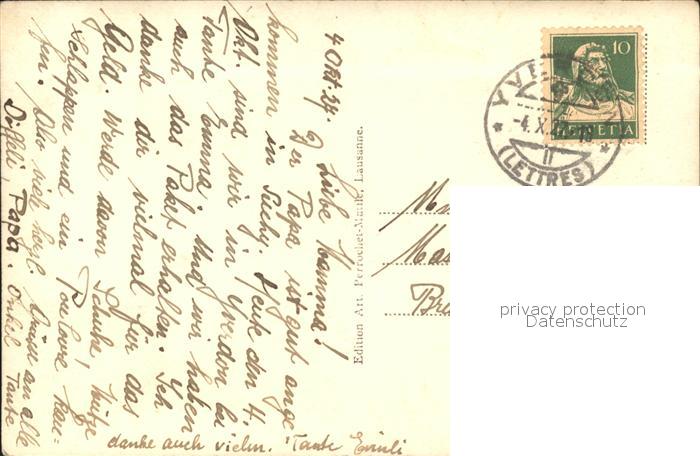 4 Okt. 27.
Liebe Mamma!
Der Papa ist gut ange
kommen in Suchy. Heute den 4.
Okt. sind wir in Yverdon bei
Tante Emma. Und wir haben
auch das Paket erhalten. Ich
danke dir vielmal für das
Geld. Werde davon Schuhe, Hütze
Schlappen und ein Poulovre kau-
fen. Also viel herzl. Grüsse an alle
Papa. Onkel Tante
danke auch vielm. Tante
Edition Art. Perrochet-Matile, Lausanne.
10
HELVETIA
(LETTRES)
Br
privacy protection
Datenschutz